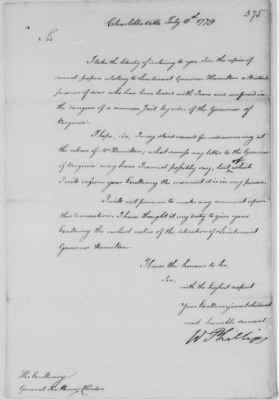 375
Charlottesville July 5th 1779
Sir
I take the liberty of inclosing to you, Sir, the copies of
several papers relating to Lieutenant Governor Hamilton a British
prisoner of war who has been loaded with Irons and confined in
the dungeon of a common Jail by order of the Governor of
Virginia.
I hope, Sir, I may stand excused for
at the
of Virginia may have I cannot possibly say, but
I will inform your Excellency the moment it is in my power.
I will not presume to make any comment upon
this transaction, I have thought it my duty to give your
Excellency the earliest notice of the situation of Lieutenant
Governor Hamilton.
I have the honour to be,
Sir,
with the highest respect
Your Excellency's most obedient
most humble servant
W Phillips
His Excellency
General Sir Henry Clinton